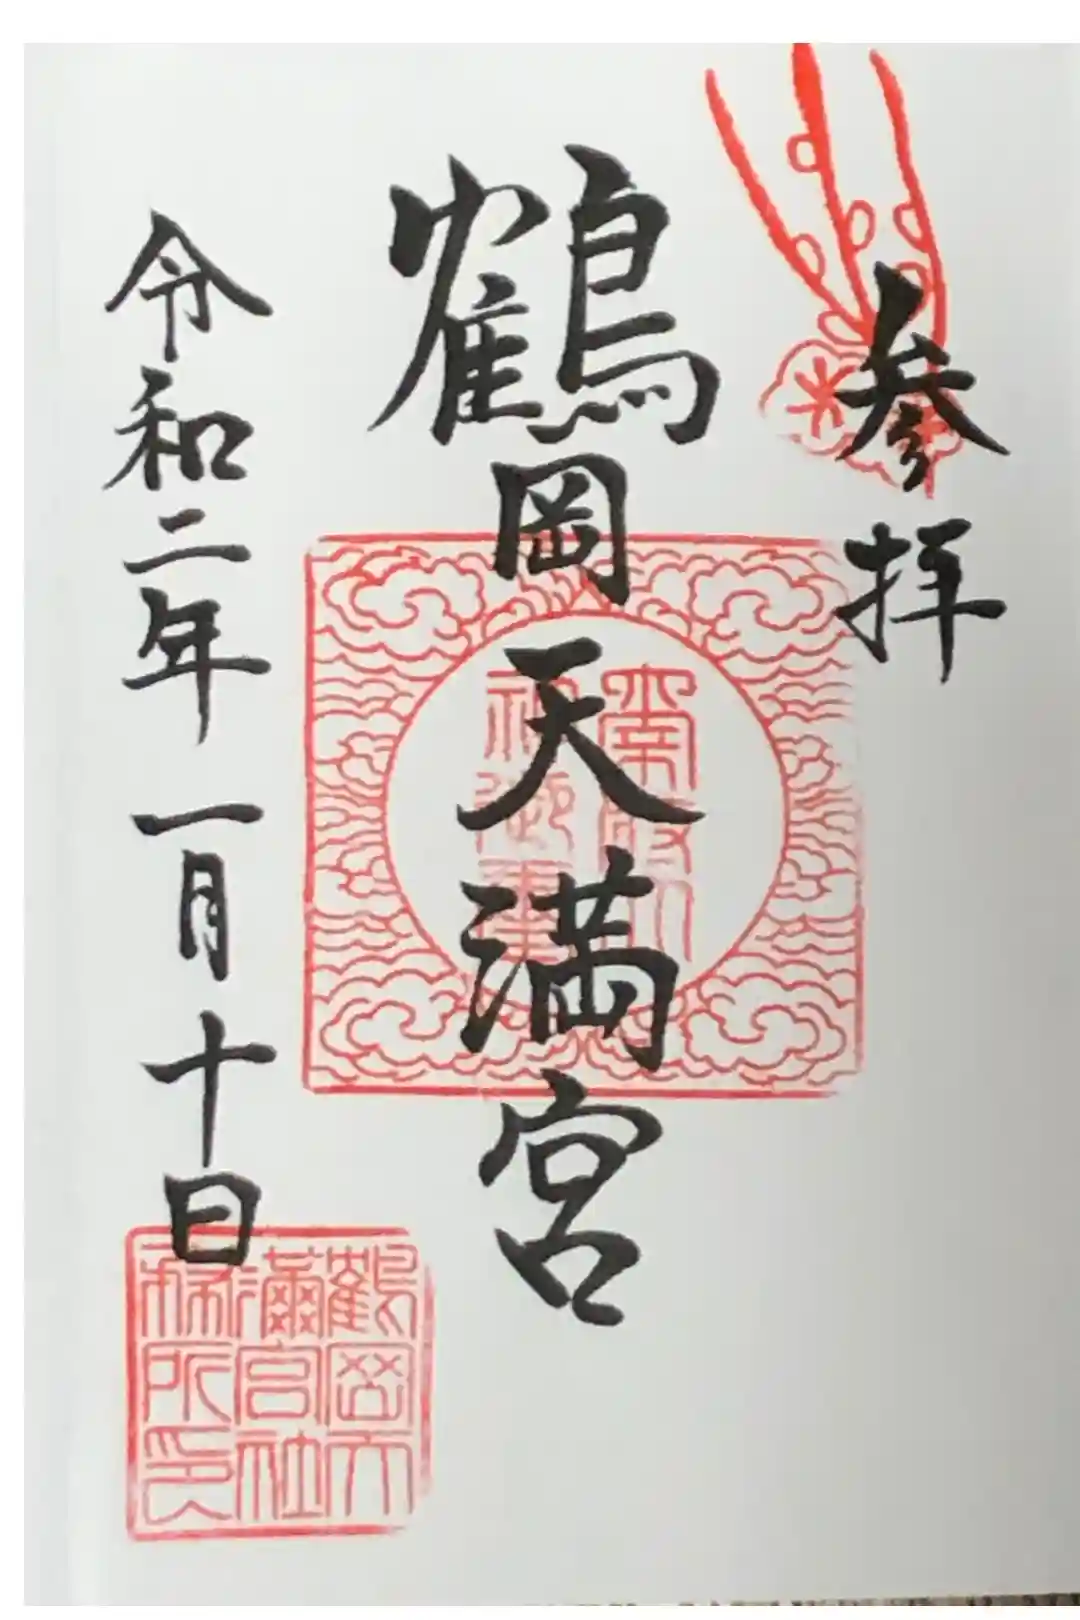 参拝
鶴岡天満宮
令和二年一月十日
鶴岡天
満宮社
務所印